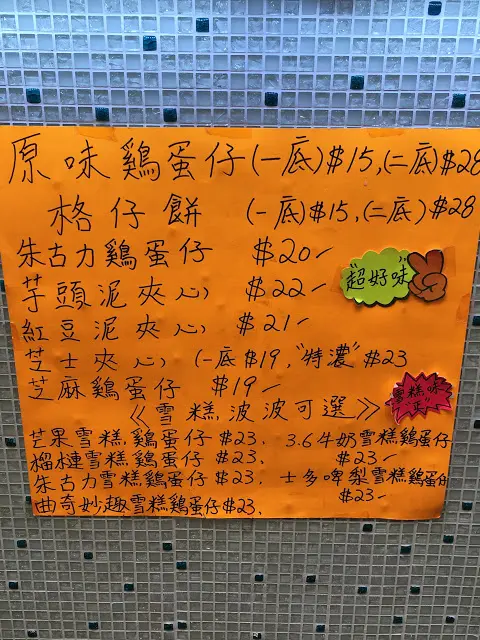 原味鷄蛋仔(一底)$15,(二底)$28
格仔餅 (一底)$15,(二底)$28
朱古力鷄蛋仔 $20
芋頭泥夾心 $22
"超好味"
紅豆泥夾心 $21
芝士夾心 (一底$19,"特濃"$23
芝麻鷄蛋仔 $19
《雪糕波波可選》
芒果雪糕鷄蛋仔$23. 3.6牛奶雪糕鷄蛋仔
榴槤雪糕鷄蛋仔$23. $23
朱古力雪糕鷄蛋仔$23. 士多啤梨雪糕鷄蛋仔
曲奇妙趣雪糕鷄蛋仔$23. $23